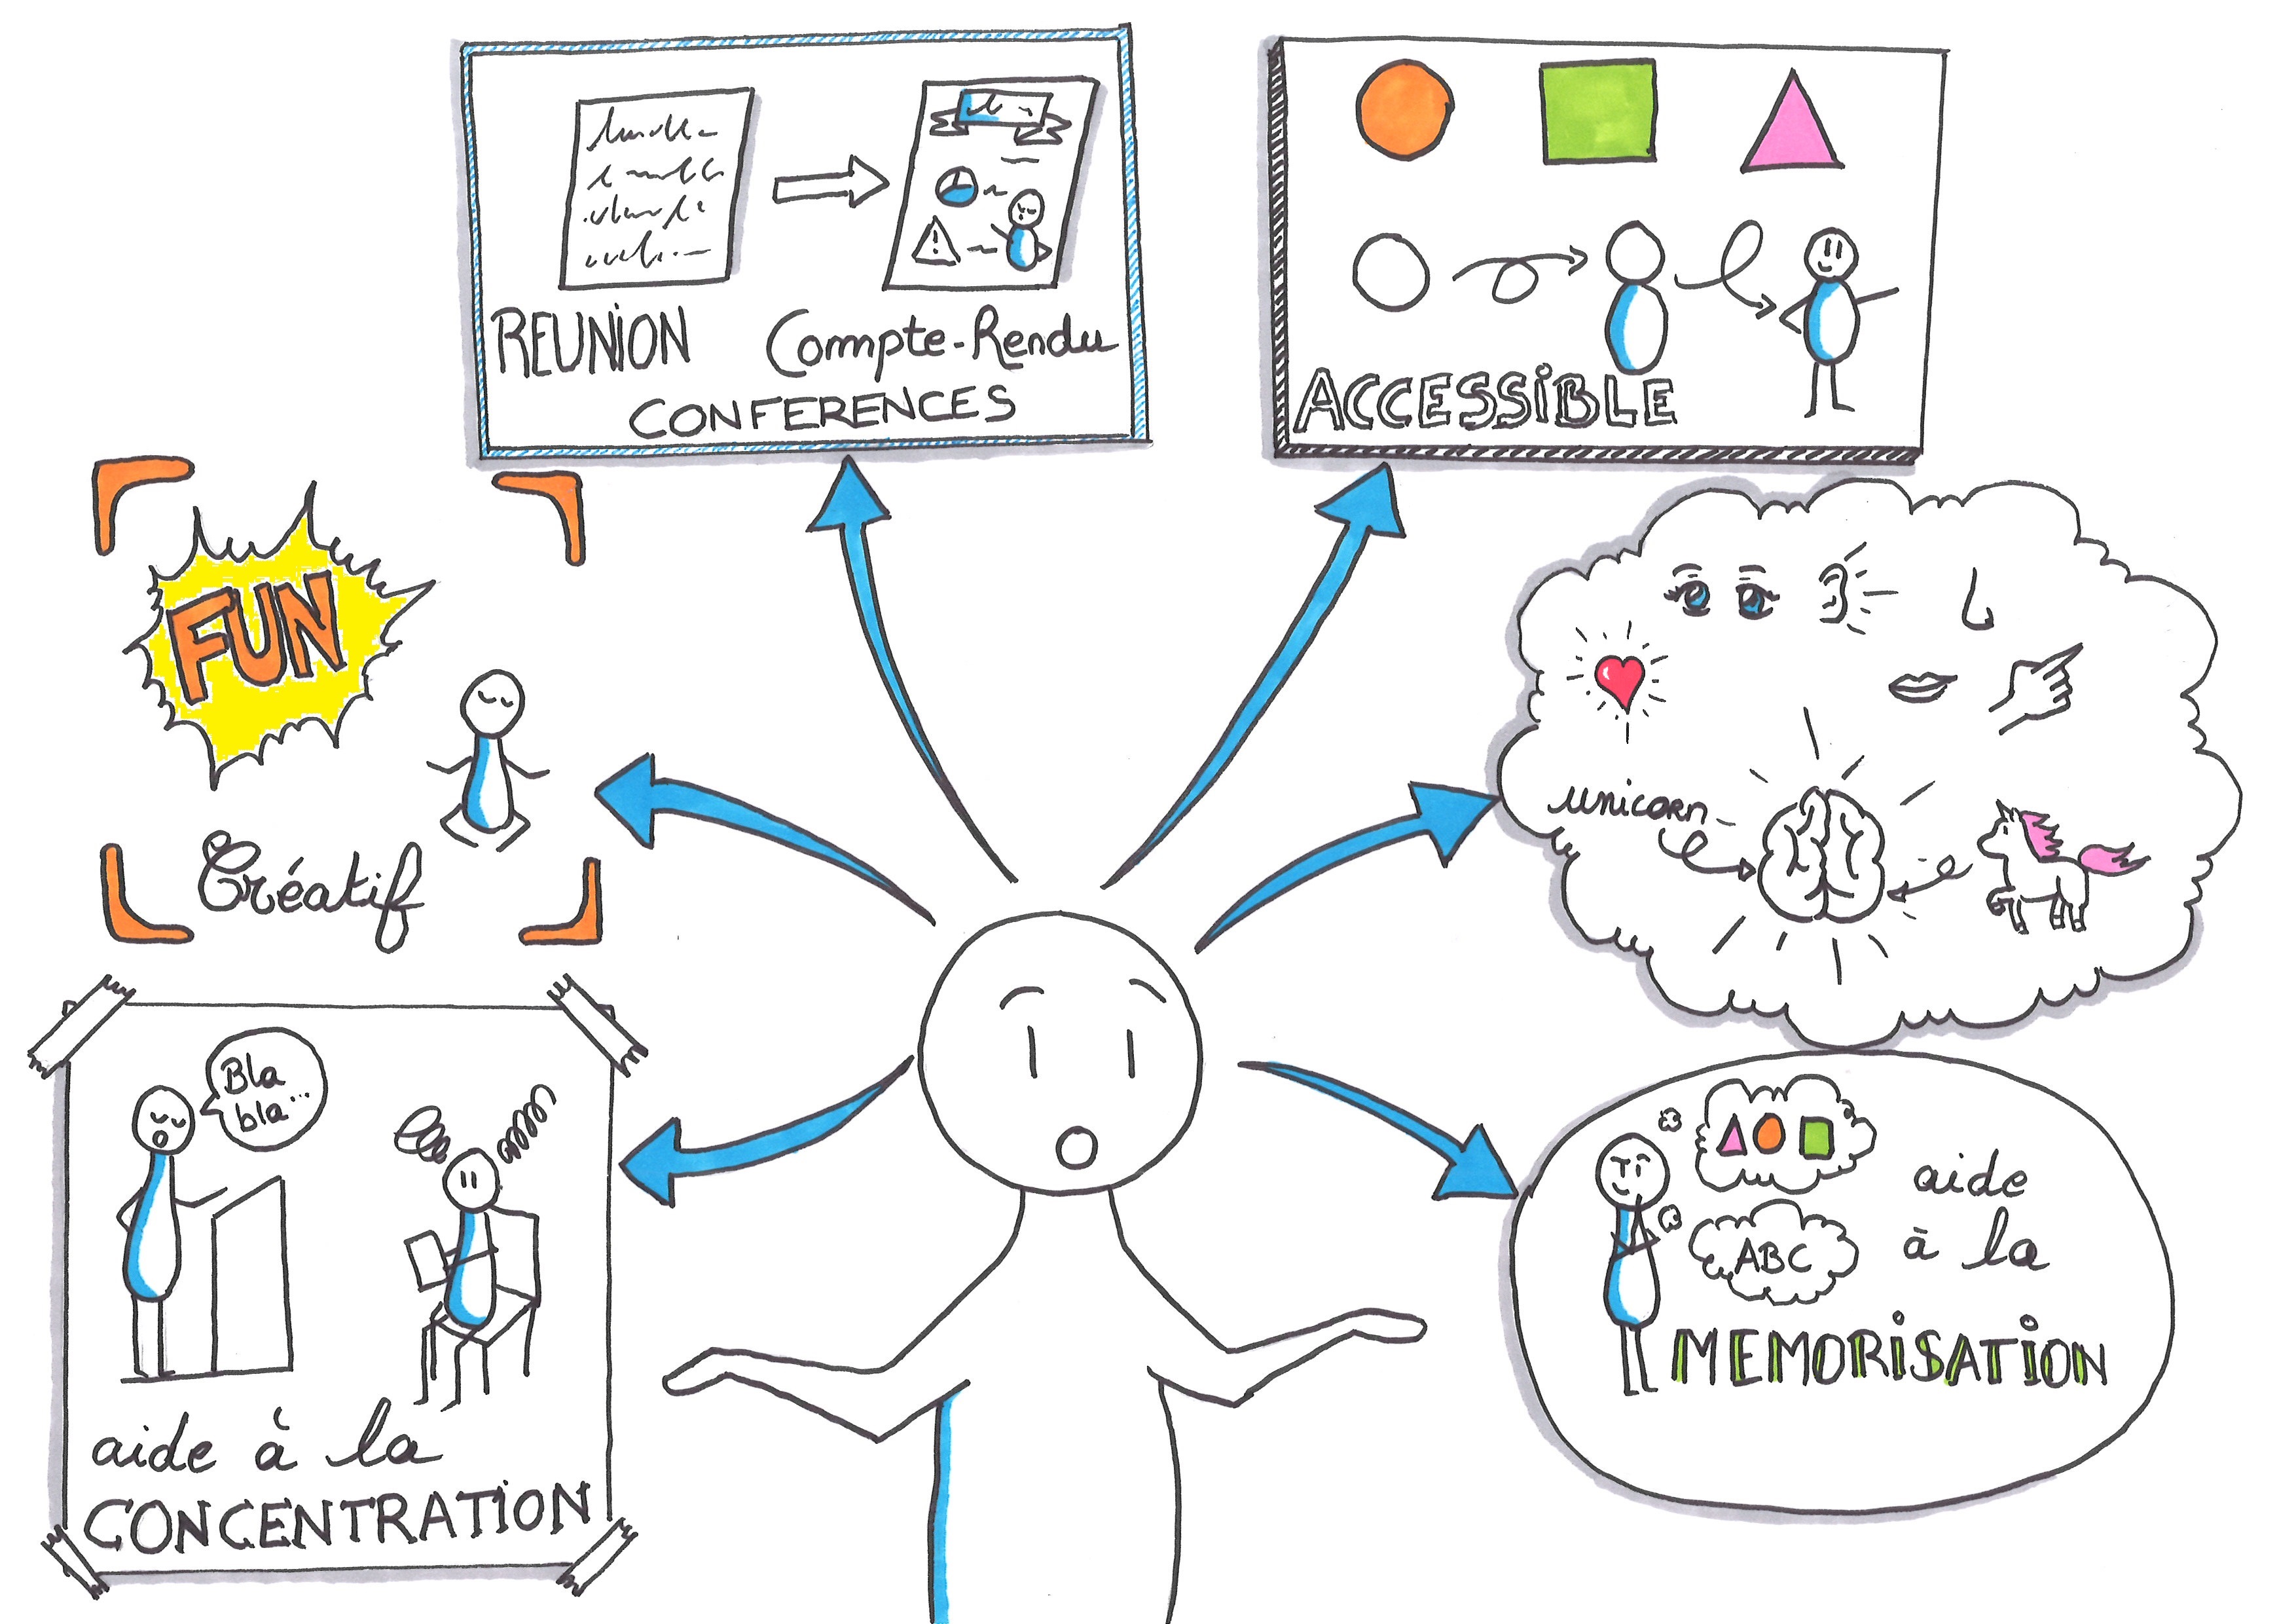 REUNION
Compte-Rendu
CONFERENCES
ACCESSIBLE
FUN
Créatif
unicorn
Bla
bla...
aide à la
CONCENTRATION
ABC
aide
à la
MEMORISATION